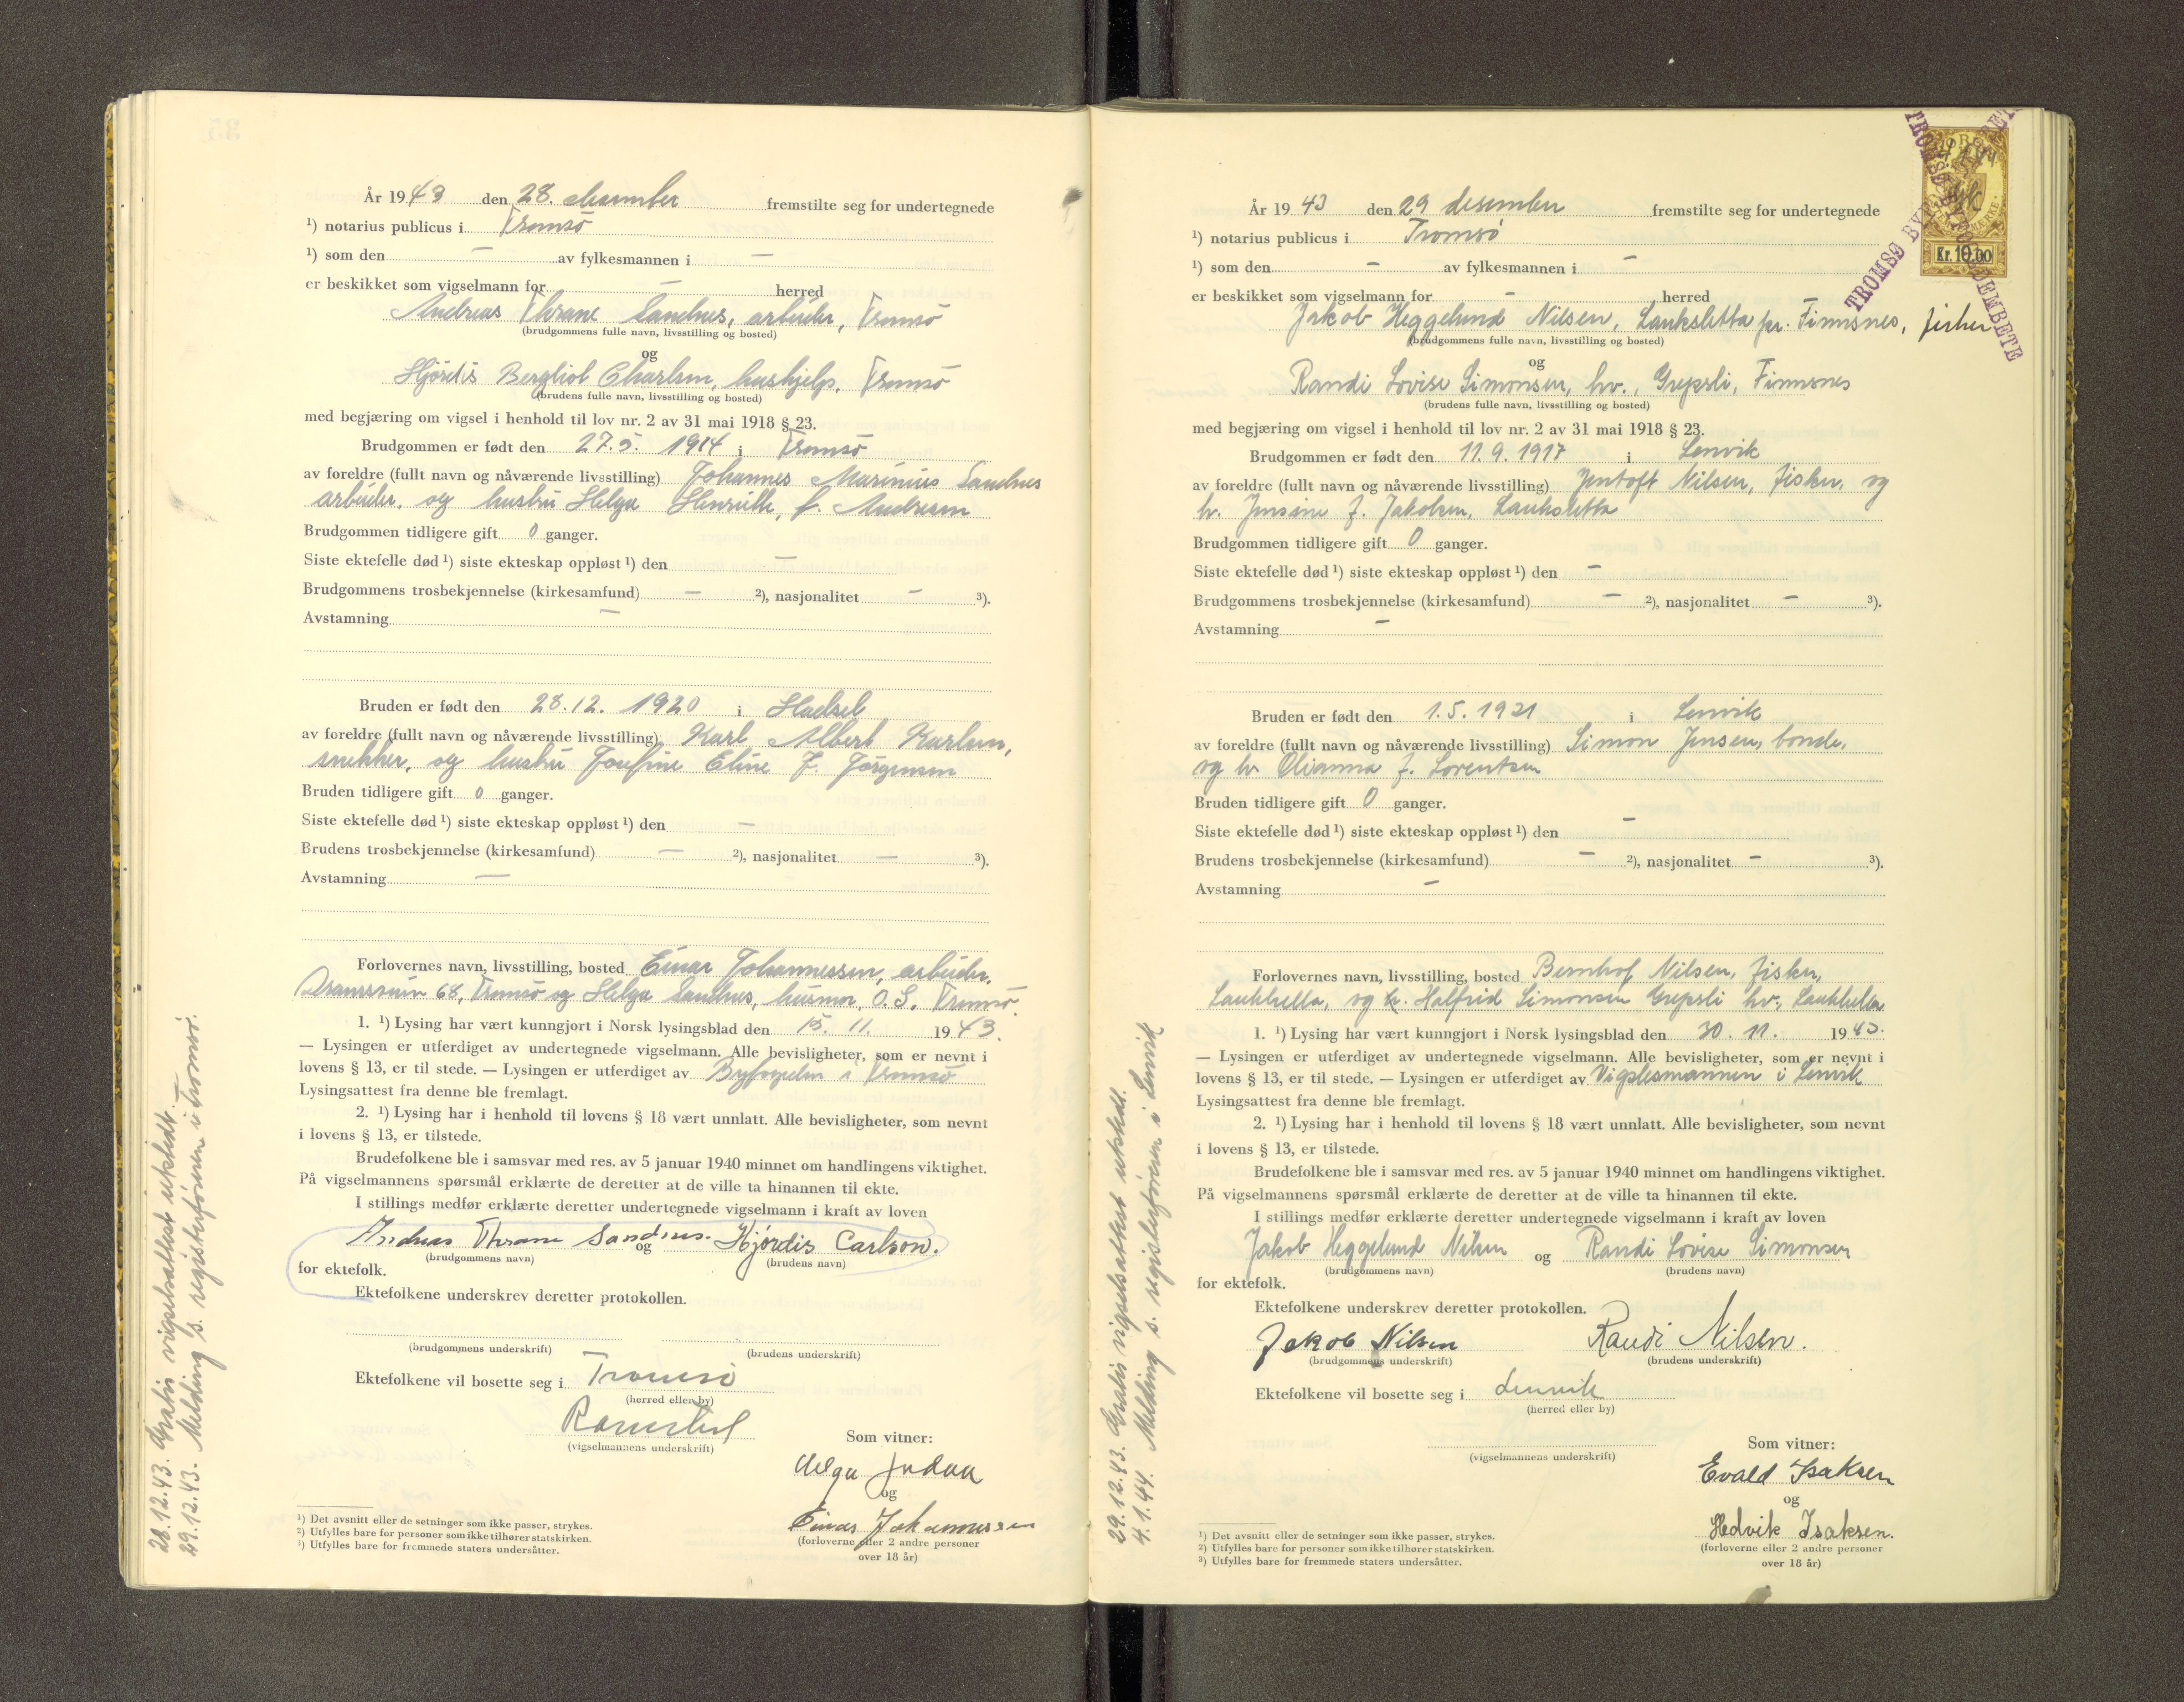 År 1943 den 28. desember fremstilte seg for undertegnede
¹) notarius publicus i Tromsö
¹) som den — av fylkesmannen i —
er beskikket som vigselmann for — herred
Andreas Thrane Sandnes, arbeider, Tromsö
(brudgommens fulle navn, livsstilling og bosted)
og
Hjördis Bergliot Charlsen, hushjelp, Tromsö
(brudens fulle navn, livsstilling og bosted)
med begjæring om vigsel i henhold til lov nr. 2 av 31 mai 1918 § 23.
Brudgommen er født den 27.5. 1914 i Tromsö
av foreldre (fullt navn og nåværende livsstilling) Johannes Marinius Sandnes
arbeider, og hustru Helga Henriette, f. Andresen
Brudgommen tidligere gift 0 ganger.
Siste ektefelle død ¹) siste ekteskap oppløst ¹) den
Brudgommens trosbekjennelse (kirkesamfund) — ²), nasjonalitet — ³).
Avstamning —
Bruden er født den 28.12. 1920 i Hadsel
av foreldre (fullt navn og nåværende livsstilling) Karl Albert Karlsen,
snekker, og hustru Josefine Eline f. Jörgensen
Bruden tidligere gift 0 ganger.
Siste ektefelle død ¹) siste ekteskap oppløst ¹) den —
Brudens trosbekjennelse (kirkesamfund) — ²), nasjonalitet — ³).
Avstamning —
Forlovernes navn, livsstilling, bosted Einar Johannessen, arbeider,
68, Tromsö og Helga Sandnes, husmor, O.S. Tromsö.
1. ¹) Lysing har vært kunngjort i Norsk lysingsblad den 15. 11. 1943.
— Lysingen er utferdiget av undertegnede vigselmann. Alle bevisligheter, som er nevnt i
lovens § 13, er til stede. — Lysingen er utferdiget av Byfogden i Tromsö
Lysingsattest fra denne ble fremlagt.
2. ¹) Lysing har i henhold til lovens § 18 vært unnlatt. Alle bevisligheter, som nevnt
i lovens § 13, er tilstede.
Brudefolkene ble i samsvar med res. av 5 januar 1940 minnet om handlingens viktighet.
På vigselmannens spørsmål erklærte de deretter at de ville ta hinannen til ekte.
I stillings medfør erklærte deretter undertegnede vigselmann i kraft av loven
Andreas Thrane Sandnes. og Hjördis Carlson.
(brudgommens navn) (brudens navn)
for ektefolk.
Ektefolkene underskrev deretter protokollen.
(brudgommens underskrift) (brudens underskrift)
Ektefolkene vil bosette seg i Tromsö
(herred eller by)
(vigselmannens underskrift)
Som vitner:
Helga
og
Einar Johannessen
(forloverne eller 2 andre personer
over 18 år)
¹) Det avsnitt eller de setninger som ikke passer, strykes.
²) Utfylles bare for personer som ikke tilhører statskirken.
¹) Utfylles bare for fremmede staters undersåtter.
28.12.43. Gratis vigselsattest utstedt.
29.12.43. Melding s. registerföreren i Tromsö.
NORGE
Kr. 10.00
TROMSØ BYFOGDEMBETE
År 1943 den 29 desember fremstilte seg for undertegnede
¹) notarius publicus i Tromsö
¹) som den — av fylkesmannen i —
er beskikket som vigselmann for — herred
Jakob Heggelund Nilsen, Lauksletta pr. Finnsnes, fisker
(brudgommens fulle navn, livsstilling og bosted)
og
Randi Lovise Simonsen, hv., Grepsli, Finnsnes
(brudens fulle navn, livsstilling og bosted)
med begjæring om vigsel i henhold til lov nr. 2 av 31 mai 1918 § 23.
Brudgommen er født den 11.9.1917 i Lenvik
av foreldre (fullt navn og nåværende livsstilling) Jentoft Nilsen, fisker, og
h. Jensine f. Jakobsen, Lauksletta
Brudgommen tidligere gift 0 ganger.
Siste ektefelle død ¹) siste ekteskap oppløst ¹) den —
Brudgommens trosbekjennelse (kirkesamfund) — ²), nasjonalitet — ³).
Avstamning —
Bruden er født den 1.5.1921 i Lenvik
av foreldre (fullt navn og nåværende livsstilling) Simon Jensen, bonde,
og h. Olianna f. Lorentsen
Bruden tidligere gift 0 ganger.
Siste ektefelle død ¹) siste ekteskap oppløst ¹) den —
Brudens trosbekjennelse (kirkesamfund) — ²), nasjonalitet — ³).
Avstamning —
Forlovernes navn, livsstilling, bosted Bernhof Nilsen, fisker,
Laukhella, og Halfrid Simonsen Grepsli hv., Laukhella
1. ¹) Lysing har vært kunngjort i Norsk lysingsblad den 30. 11. 1943.
— Lysingen er utferdiget av undertegnede vigselmann. Alle bevisligheter, som er nevnt i
lovens § 13, er til stede. — Lysingen er utferdiget av Vigslesmannen i Lenvik
Lysingsattest fra denne ble fremlagt.
2. ¹) Lysing har i henhold til lovens § 18 vært unnlatt. Alle bevisligheter, som nevnt
i lovens § 13, er tilstede.
Brudefolkene ble i samsvar med res. av 5 januar 1940 minnet om handlingens viktighet.
På vigselmannens spørsmål erklærte de deretter at de ville ta hinannen til ekte.
I stillings medfør erklærte deretter undertegnede vigselmann i kraft av loven
Jakob Heggelund Nilsen og Randi Lovise Simonsen
(brudgommens navn) (brudens navn)
for ektefolk.
Ektefolkene underskrev deretter protokollen.
Jakob Nilsen Randi Nilsen.
(brudgommens underskrift) (brudens underskrift)
Ektefolkene vil bosette seg i Lenvik
(herred eller by)
(vigselmannens underskrift)
Som vitner:
Evald Isaksen
og
Hedvik Isaksen.
(forloverne eller 2 andre personer
over 18 år)
¹) Det avsnitt eller de setninger som ikke passer, strykes.
²) Utfylles bare for personer som ikke tilhører statskirken.
³) Utfylles bare for fremmede staters undersåtter.
29.12.43. Gratis vigselsattest utstedt.
4.1.44. Melding s. registerföreren i Lenvik